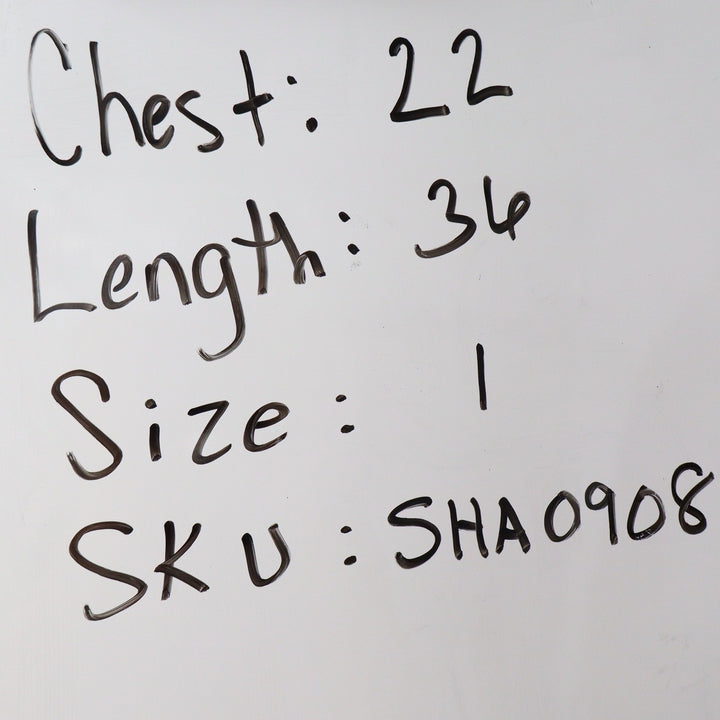 Chest: 22
Length: 36
Size: 1
SKU: SHA0908